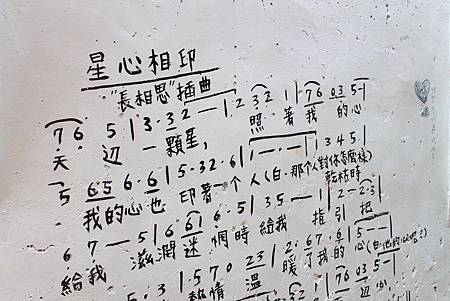 星心相印
"長相思"插曲
7 6 5 | 3·3 2 — 1 | 2 3 2 1 | 7 6 0 3 5 - |
天 辺 一顆星, 照 著 我 的 心
5· 6 5 6·6 | 5·3 2·6 | 1 — · — | 3 4 5 |
我的心也 印著一个人(白:那个人對你怎麼樣) 乾枯時
6 7 — 5 | 6 6 1 6·5 | 3 5 — 1 | 2 — 2·3 |
給我 滋潤 迷 惘時給我 指引 把
3 | 5 7 0 2 3 | 2· 6 7 6 | 5 — — |
熱情 溫 暖了我的 心(白:他的心呢?)
7 6 0 3 5 —
辺